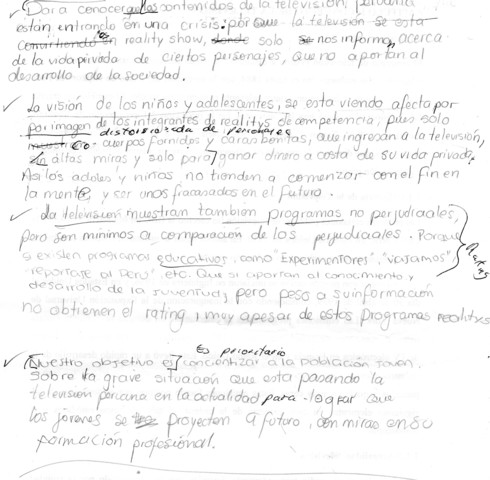 ✓ Dar a conocer que los contenidos de la televisión peruana
están entrando en una crisis: por que la televisión se esta
convirtiendo en reality show, donde solo se nos informa, acerca
de la vida privada de ciertos personajes, que no aportan al
desarrollo de la sociedad.
✓ La visión de los niños y adolescentes, se esta viendo afecta por
por imagen de los integrantes de realitys de competencia, pues solo
distorsionada de personajes
cuerpos fornidos y caras bonitas, que ingresán a la televisión,
sin altas miras y solo para ganar dinero a costa de su vida privada.
Asi los adoles y niñas no tienden a comenzar con el fin en
la mente, y ser unos fracasados en el futuro.
✓ La televisión muestran tambien programas no perjudicales,
pero son minimos a comparación de los perjudicales. Porque
si existen programas educativos, como "Experimentores". "Vajamos"
"reportaje al Perú", etc. Que si aportan al conocimiento y
desarrollo de la juventud, pero peso a su información
no obtienen el rating, muy apesar de estos programas realitys
Es prioritario
✓ Nuestro objetivo es concientizar a la población joven.
Sobre la grave situación que esta pasando la
televisión peruana en la actualidad para lograr que
los jóvenes se proyecten a futuro, con miras en su
formación profesional.